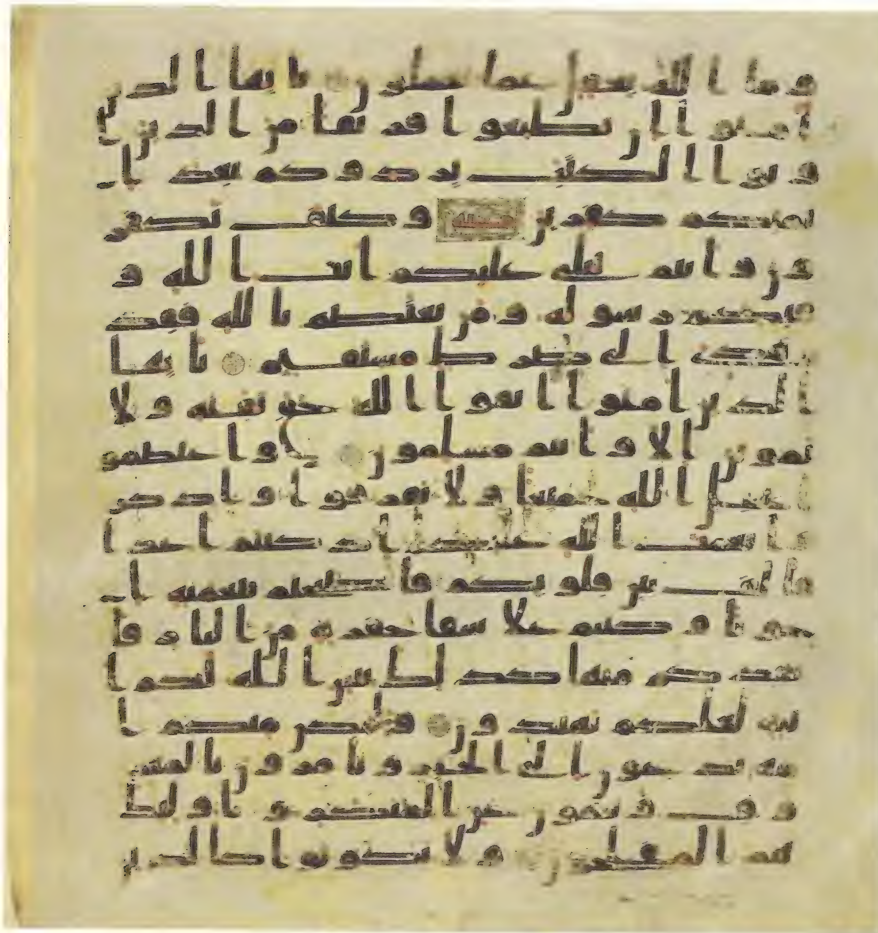 وما الله بغفل عما تعملون يايها الذين
امنوا ان تطيعوا فريقا من الذين ا
وتوا الكتب يردوكم بعد ا
يمنكم كفرين وكيف تكفر
ون وانتم تتلى عليكم ايت الله و
فيكم رسوله ومن يعتصم بالله فقد
هدى الى صرط مستقيم يايها
الذين امنوا اتقوا الله حق تقته ولا
تموتن الا وانتم مسلمون واعتصمو
ا بحبل الله جميعا ولا تفرقوا واذكر
وا نعمت الله عليكم اذ كنتم اعدا
فالف بين قلوبكم فاصبحتم بنعمته ا
خونا وكنتم علا شفا حفرة من النار فا
نقذكم منها كذلك يبين الله لكم ا
يته لعلكم تهتدون ولتكن منكم ا
مة يدعون الى الخير ويامرون بالمعر
وف وينهون عن المنكر واوليك
هم المفلحون ولا تكونوا كالذين